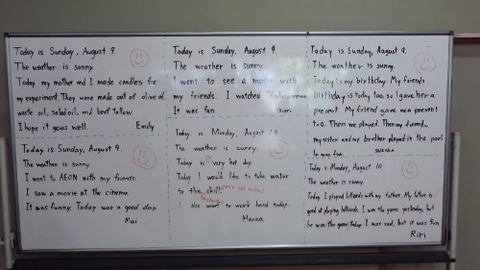 Today is Sunday, August 9.
The weather is sunny.
Today my mother and I made candles for
my experiment. They were made out of olive oil,
waste oil, salad oil, and beef tallow.
I hope it goes well. Emily
Today is Sunday, August 9.
The weather is sunny.
I went to AEON with my friends.
I saw a movie at the cinema.
It was funny. Today was a good day.
Mai
Today is Sunday, August 9.
The weather is sunny.
I went to see a movie with
my friends. I watched
It was fun.
Today is Monday, August 10.
The weather is sunny.
Today is very hot day.
Today I would like to take water
to the
I also want to work hard today.
Manna
Today is Sunday, August 9.
The weather is sunny.
Today is my birthday. My friend's
birthday is today too, so I gave her a
present. My friend gave me a present
too. Then we played. Then my friends,
my sister and my brother played in the pool.
It was fun.
Today is Monday, August 10.
The weather is sunny.
Today I played billiards with my father. My father is
good at playing billiards. I won the game yesterday, but
he won the game today. I was sad, but it was fun.
Riri